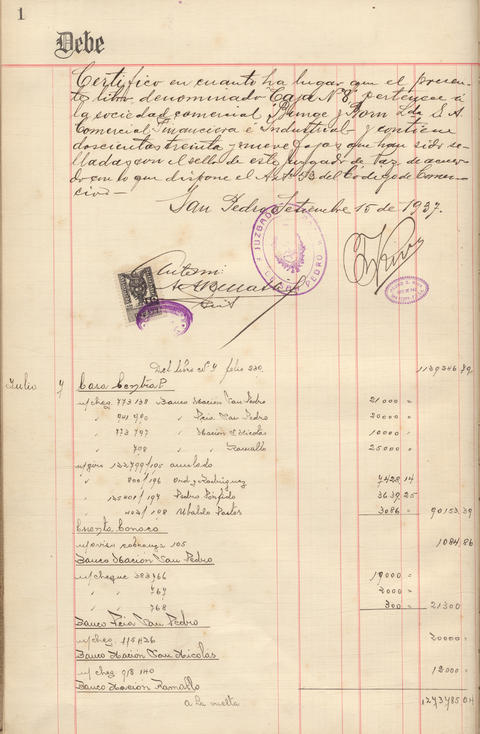 1
Debe
Certifico en cuanto ha lugar que el presen-
te libro denominado Caja Nº 8, pertenece á
la sociedad comercial Bunge y Born Lda S.A.
Comercial Financiera é Industrial y contiene
doscientas treinta y nueve fojas que han sido se-
lladas con el sello de este Juzgado de Paz de acuer-
do con lo que dispone el Art. 53 del Código de Comer-
cio —
San Pedro, Setiembre 15 de 1937.
JUZGADO DE PAZ
SAN PEDRO
Ante mi:
Del libro Nº 7 folio 230 1139346.79
Julio 7 Casa Central
n/cheq 773138 Banco Nacion San Pedro 21000 =
" 941980 " Pcia San Pedro 20000 =
" 773797 " Nacion S Nicolas 10000 =
" 798 " " Ramallo 25000 =
n/giro 132799/105 anulado
" 800/196 Ond. y Rodriguez 7428.14
" 135001/197 Pedro Pórfido 3639.25
" 402/108 Ubaldo Pastor 3086 = 90153.39
Cuenta Conaco
n/aviso cobranza 105 1084.86
Banco Nacion San Pedro
n/cheque 383766 19000 =
" " 767 2000 =
" " 768 300 = 21300
Banco Pcia San Pedro
n/cheq. 115426 20000 =
Banco Nacion San Nicolas
n/cheq 918140 12000 =
Banco Nacion Ramallo
a la vuelta 1273785.04